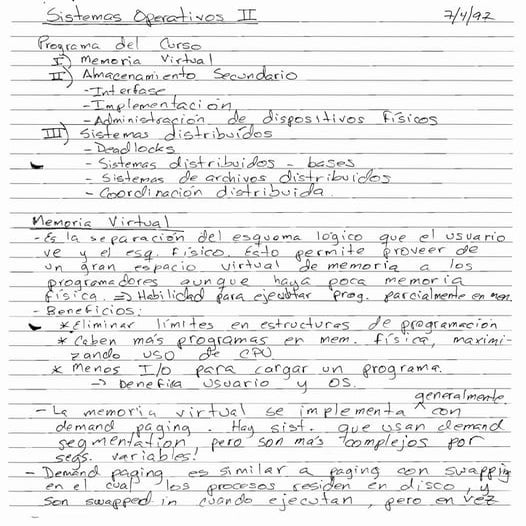 Sistemas Operativos II 7/4/92
Programa del Curso
I) Memoria Virtual
II) Almacenamiento Secundario
-Interfase
-Implementación
-Administración de dispositivos físicos
III) Sistemas distribuídos
-Deadlocks
- Sistemas distribuidos - bases
- Sistemas de archivos distribuidos
- Coordinación distribuida.
Memoria Virtual
- Es la separación del esquema lógico que el usuario
ve y el esq. físico. Esto permite proveer de
un gran espacio virtual de memoria a los
programadores aunque haya poca memoria
física. => Habilidad para ejecutar prog. parcialmente en mem.
- Beneficios:
* Eliminar límites en estructuras de programación
* Caben más programas en mem. física, maximi-
zando uso de CPU
* Menos I/o para cargar un programa.
-> Benefica usuario y OS.
- La memoria virtual se implementa ^generalmente con
demand paging. Hay sist. que usan demand
segmentation, pero son más complejos por
segs. variables!
- Demand paging es similar a paging con swapping
en el cual los procesos residen en disco, y
son swapped in cuando ejecutan, pero en vez